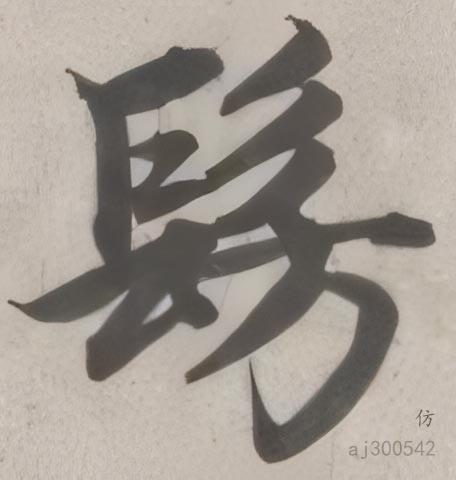 髣
仿
aj300542